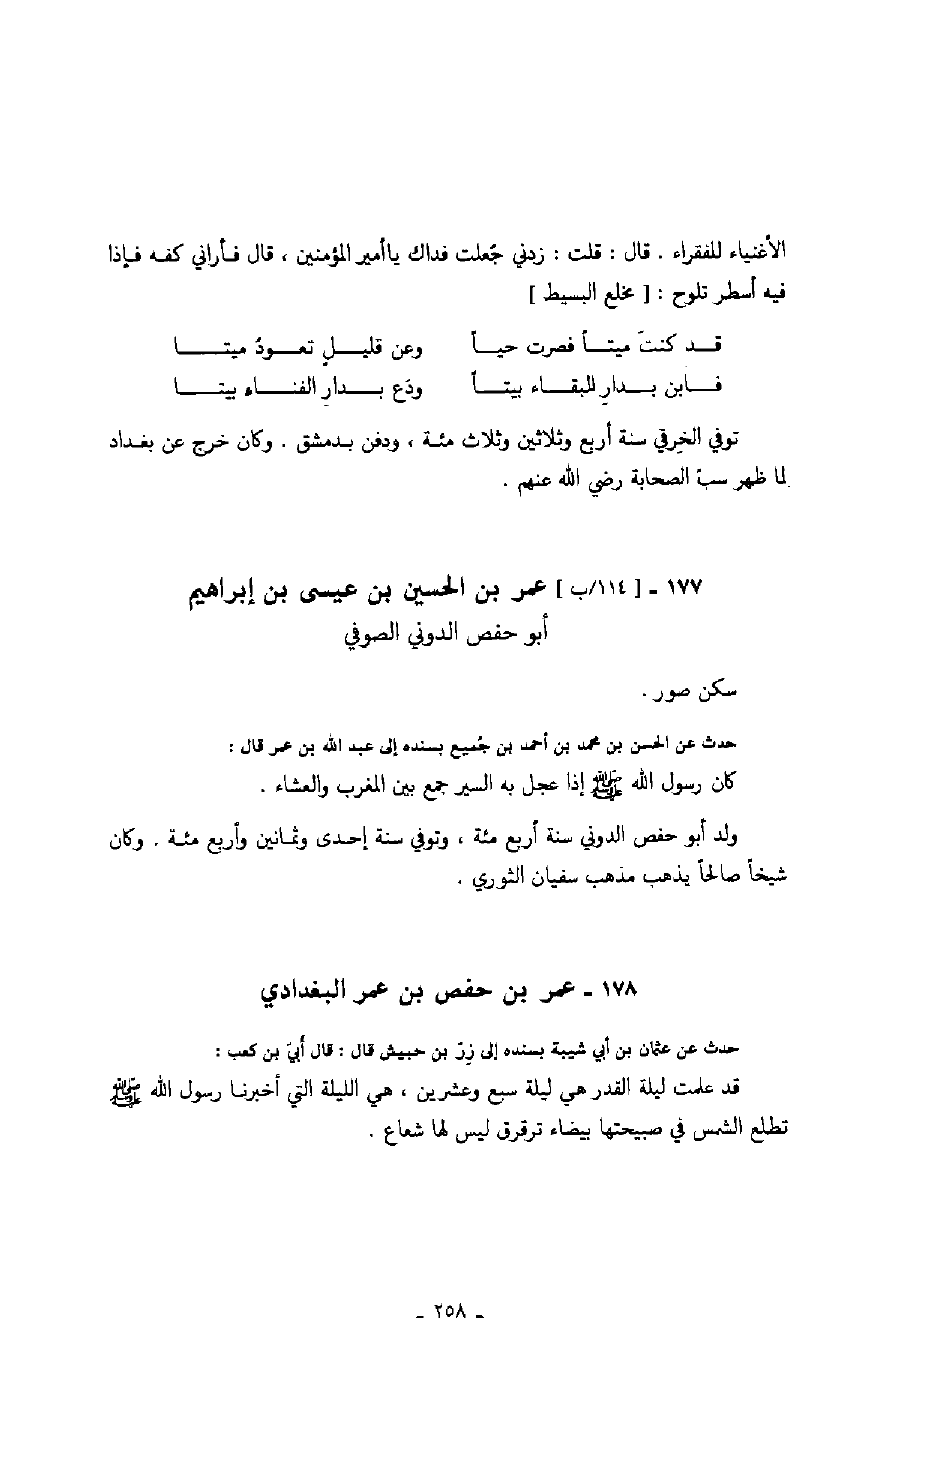 الأغنياء للفقراء . قال : قلت : زدني جُعلت فداك ياأمير المؤمنين ، قال فأراني كفه فإذا
فيه أسطر تلوح : [ مخلع البسيط ]
قد كنتَ ميتاً فصرت حياً وعن قليلٍ تعودُ ميتا
فابن بدارِ البقاء بيتاً ودَع بدارِ الفناء بيتا
توفي الخِرقي سنة أربع وثلاثين وثلاث مئة ، ودفن بدمشق . وكان خرج عن بغداد
لما ظهر سبّ الصحابة رضي الله عنهم .
١٧٧ ـ [ ١١٤/ب ] عمر بن الحسين بن عيسى بن إبراهيم
أبو حفص الدوني الصوفي
سكن صور .
حدث عن الحسن بن محمد بن أحمد بن جُميع بسنده إلى عبد الله بن عمر قال :
كان رسول الله ﷺ إذا عجل به السير جمع بين المغرب والعشاء .
ولد أبو حفص الدوني سنة أربع مئة ، وتوفي سنة إحدى وثمانين وأربع مئة . وكان
شيخاً صالحاً يذهب مذهب سفيان الثوري .
١٧٨ ـ عمر بن حفص بن عمر البغدادي
حدث عن عثمان بن أبي شيبة بسنده إلى زِرّ بن حبيش قال : قال أُبيّ بن كعب :
قد علمت ليلة القدر هي ليلة سبع وعشرين ، هي الليلة التي أخبرنا رسول الله ﷺ
تطلع الشمس في صبيحتها بيضاء ترقرق ليس لها شعاع .
ـ ٢٥٨ ـ